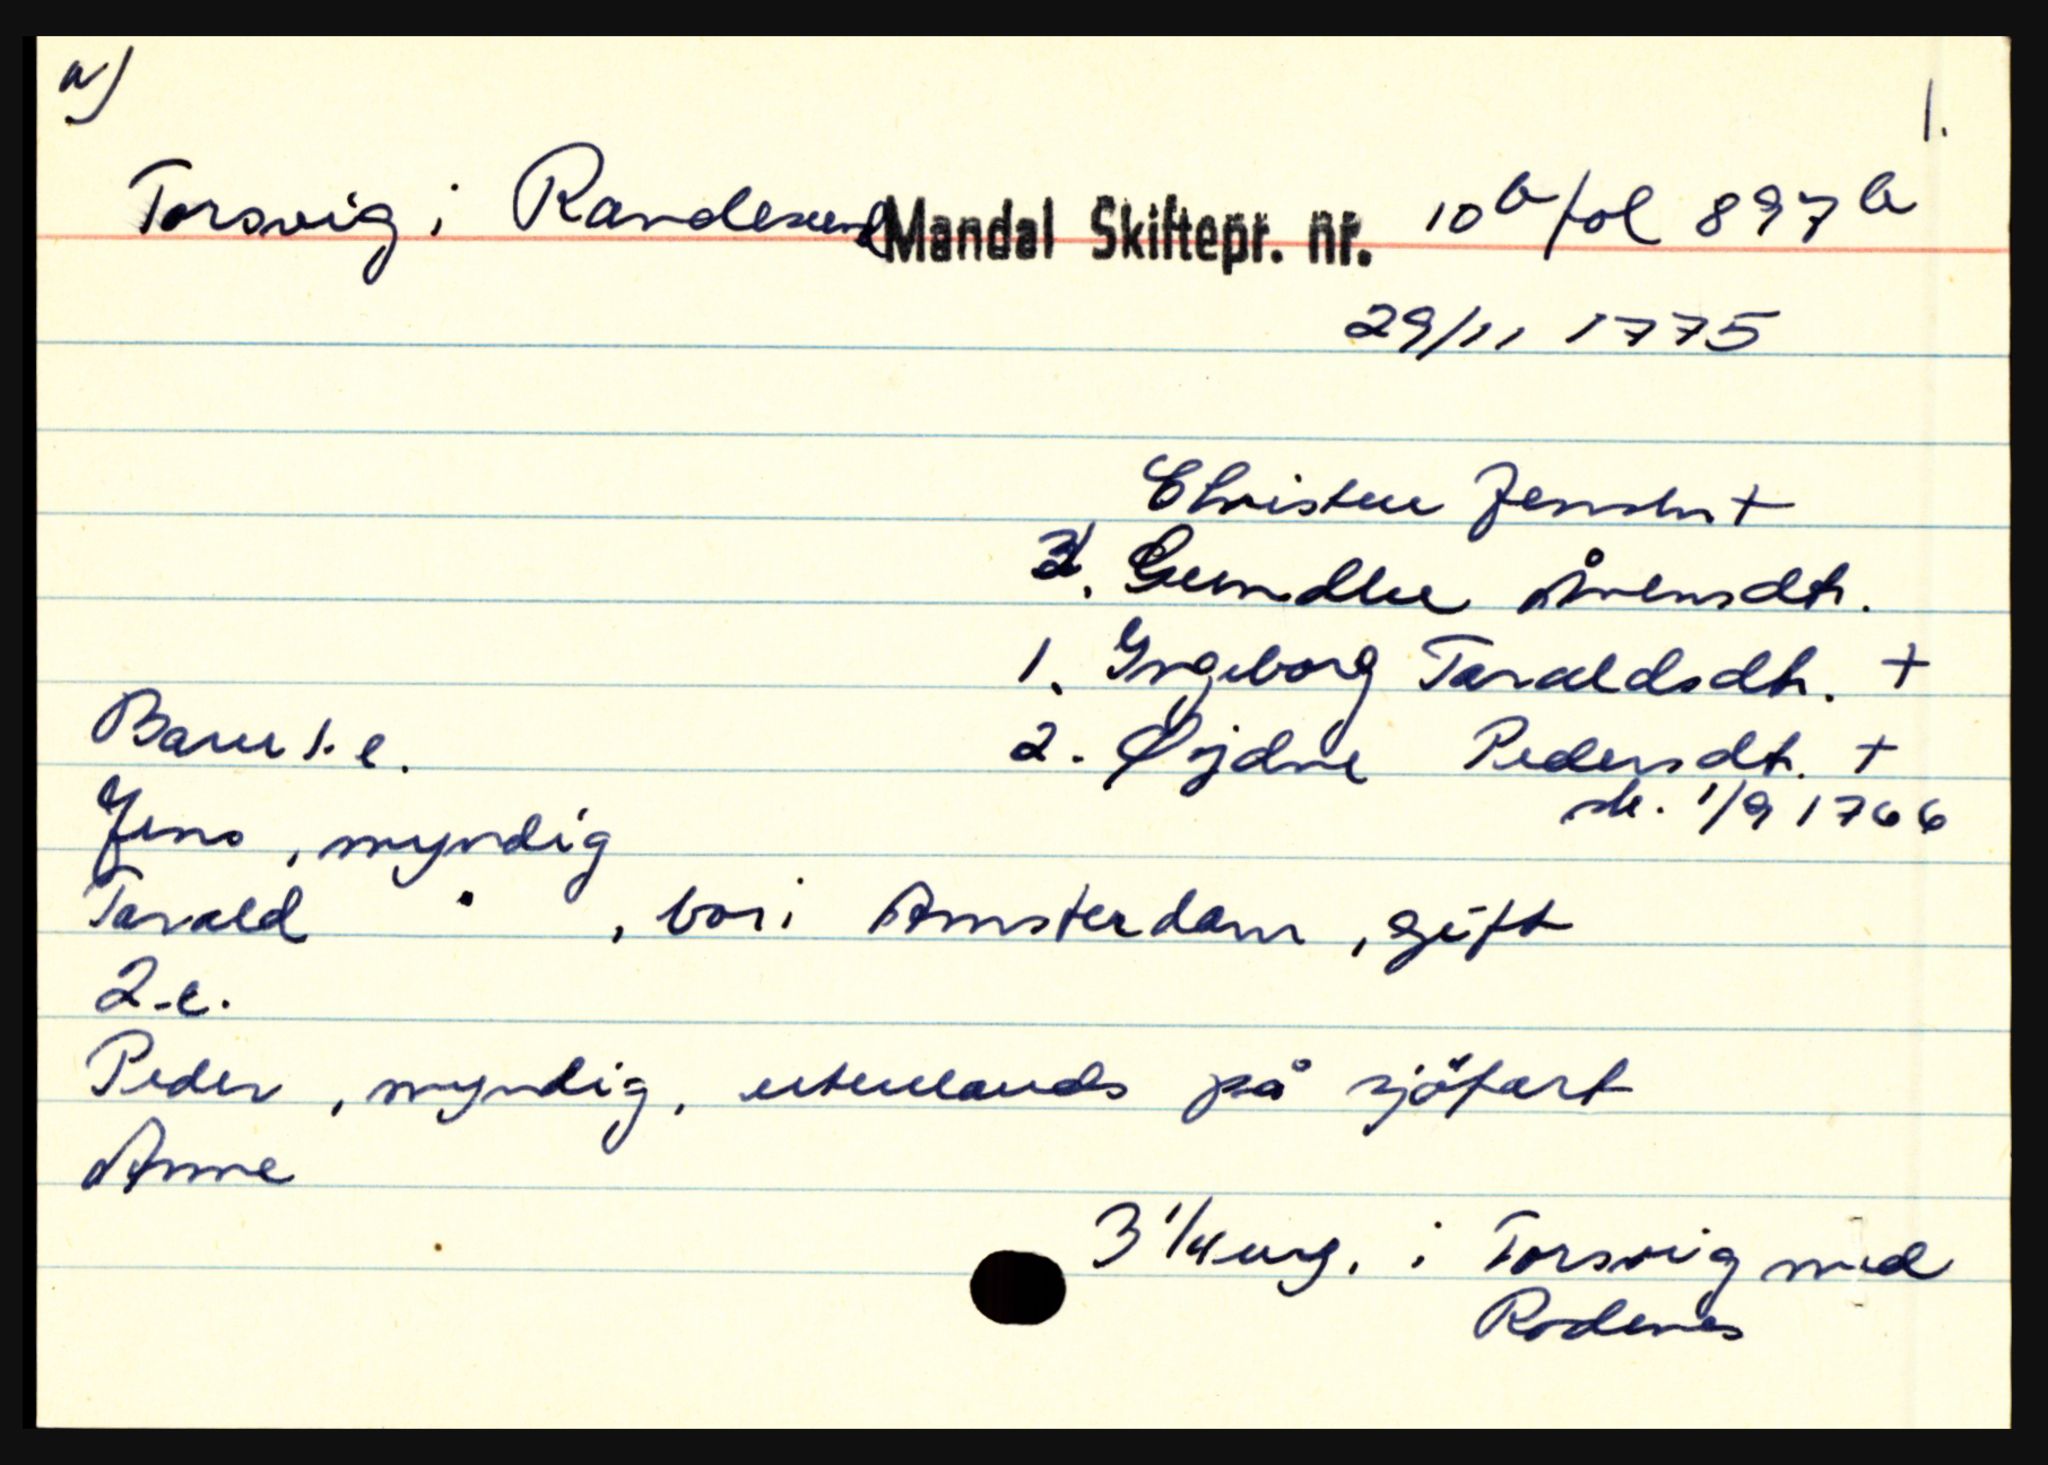 a)
1.
Torsvig i Randesund Mandal Skiftepr. nr. 10b fol 897b
29/11 1775
Christen Jensen +
3. Gundlee Ånensdtr.
1. Yngeborg Taraldsdtr. +
Barn 1. e.
2. Øydne Pedersdtr. +
sk. 1/9 1766
Jens, myndig
Tarald " , bor i Amsterdam, gift
2. e.
Peder, myndig, utenlands på sjöfart
Anne
3 1/4 eng. i Torsvig med
Rodenes